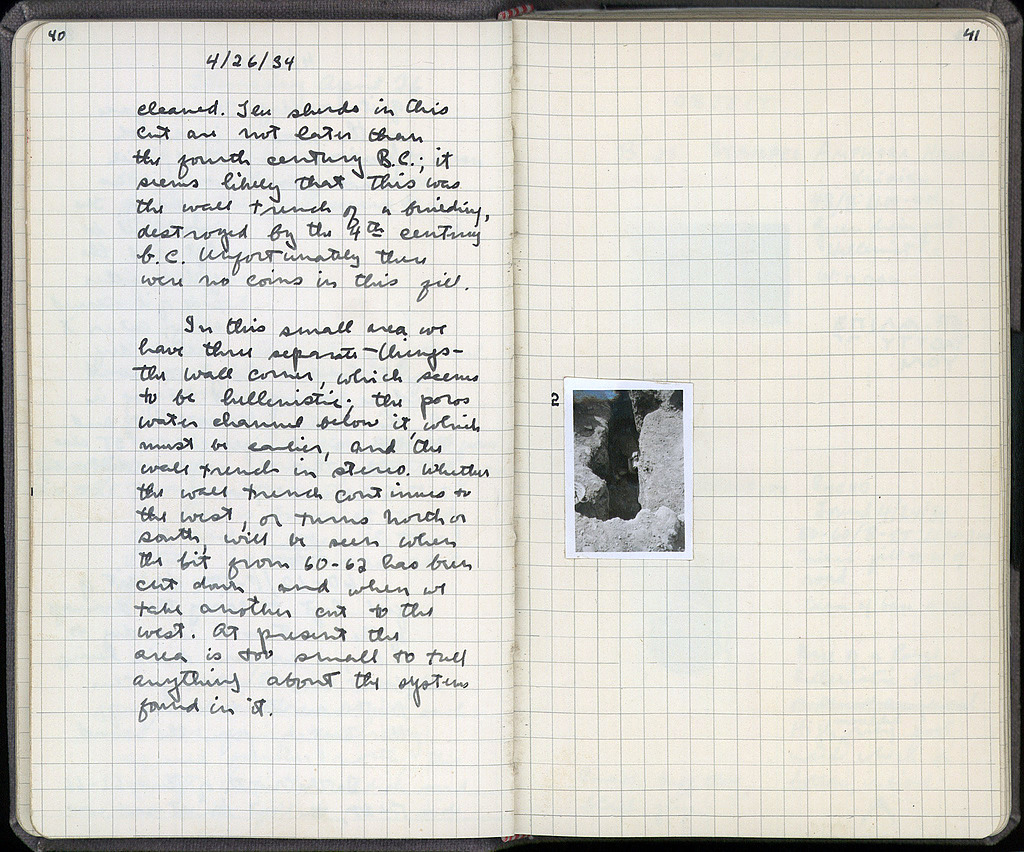 40
4/26/34
cleaned. The sherds in this
cut are not later than
the fourth century B.C.; it
seems likely that this was
the wall trench of a building,
destroyed by the 4th century
B.C. Unfortunately there
were no coins in this fill.
In this small area we
have three separate things-
the wall corner, which seems
to be hellenistic; the poros
water channel below it, which
must be earlier, and the
wall trench in stereo. Whether
the wall trench continues to
the west, or turns north or
south, will be seen when
the bit from 60-62 has been
cut down, and when we
take another cut to the
west. At present the
area is too small to tell
anything about the systems
found in it.
41
2